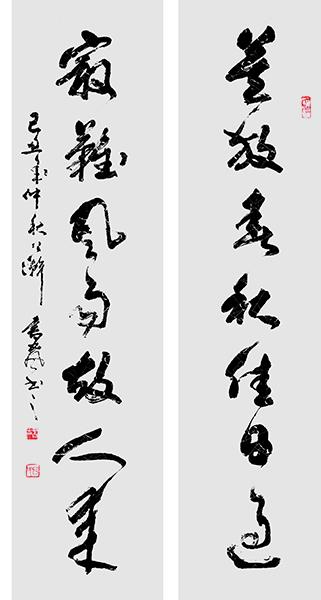 莫放春秋佳日過
最難風雨故人來
己丑年仲秋